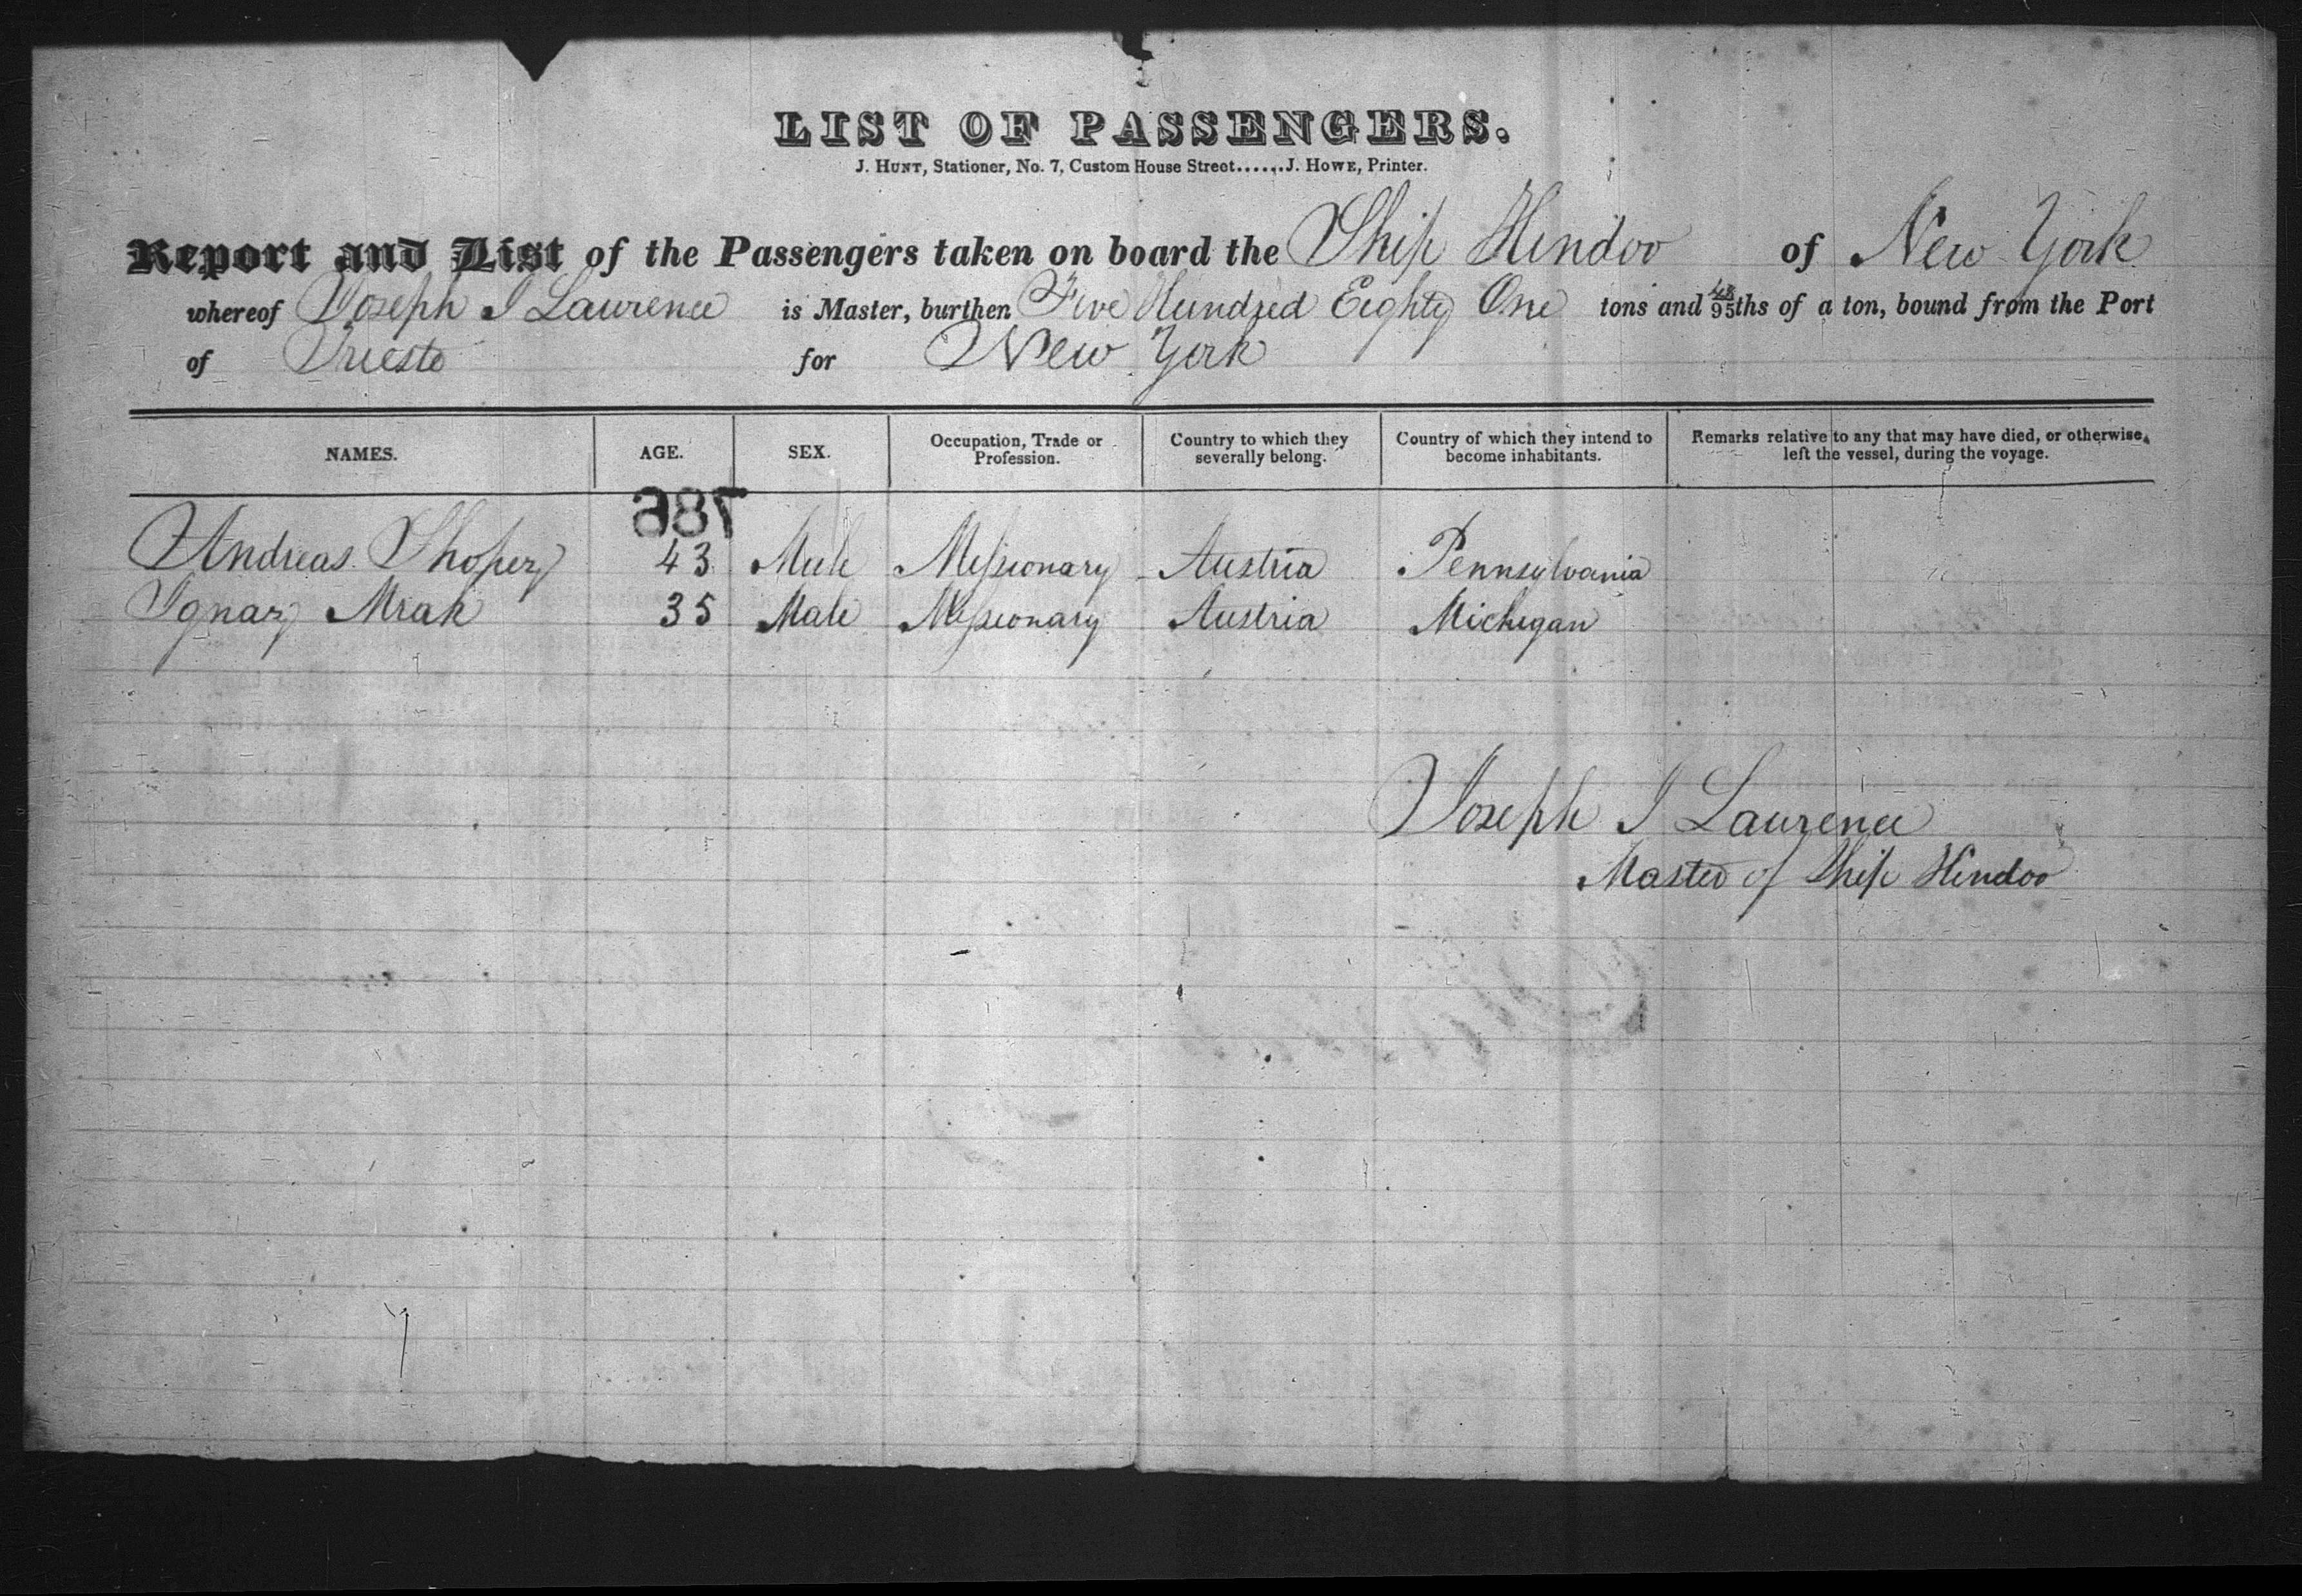 LIST OF PASSENGERS.
J. HUNT, Stationer, No. 7, Custom House Street......J. HOWE, Printer.
Report and List of the Passengers taken on board the Ship Hindoo of New York
whereof Joseph J Laurence is Master, burthen Five Hundred Eighty One tons and 48/95ths of a ton, bound from the Port
of Trieste for New York
NAMES. AGE. SEX. Occupation, Trade or Profession. Country to which they severally belong. Country of which they intend to become inhabitants. Remarks relative to any that may have died, or otherwise left the vessel, during the voyage.
786
Andreas Skoperz 43 Male Missionary Austria Pennsylvania
Ignaz Mrak 35 Male Missionary Austria Michigan
Joseph J Laurence
Master of Ship Hindoo